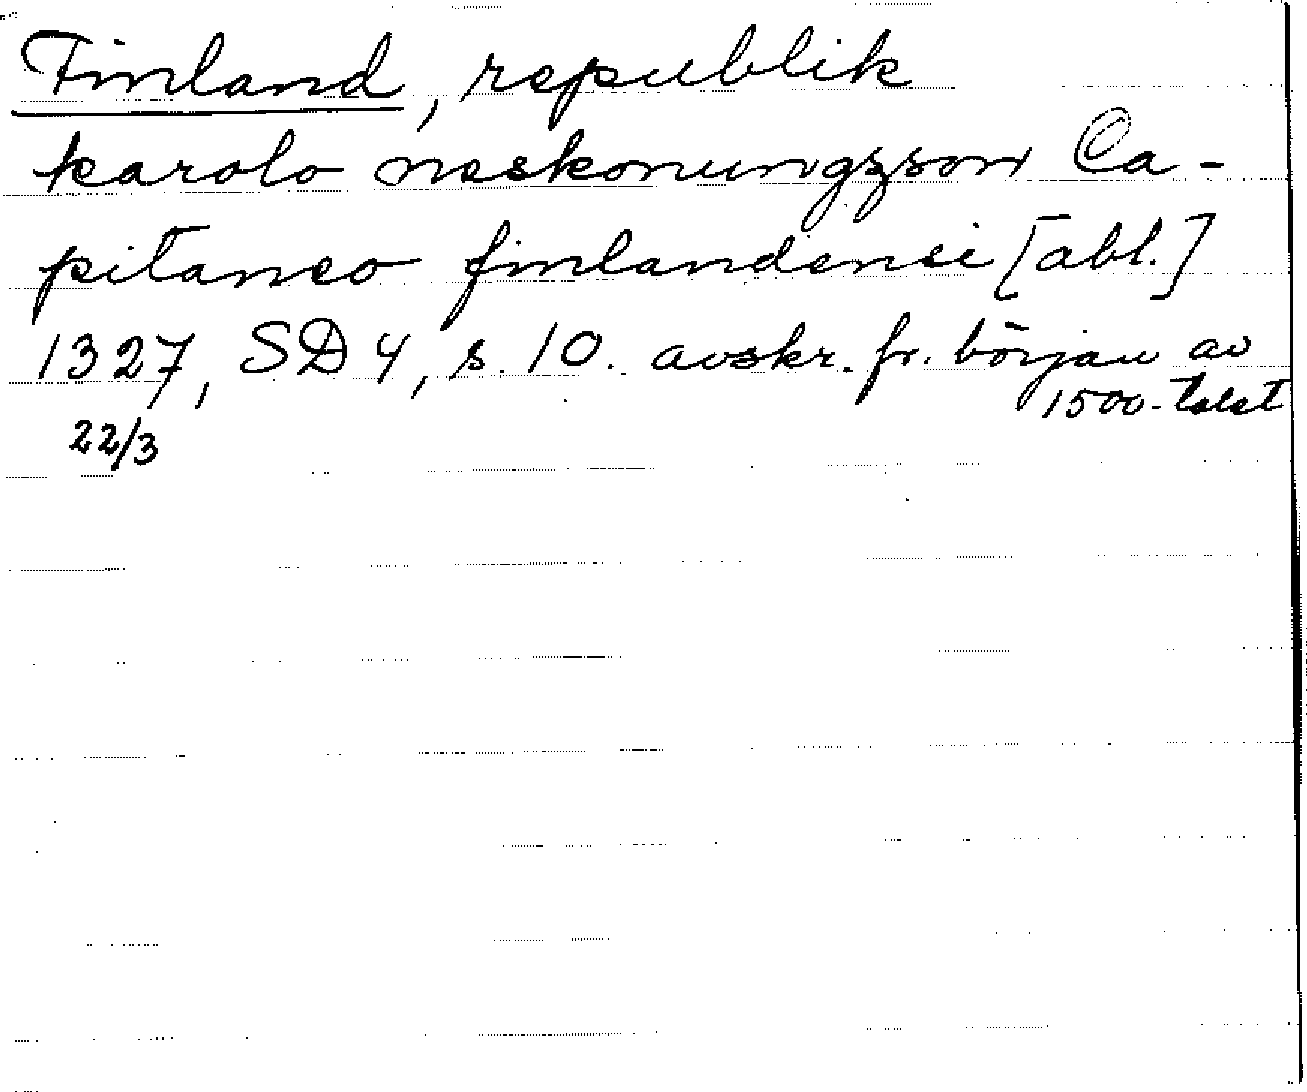 Finland, republik
karolo neskonungzson Ca-
pitaneo finlandensi [abl.]
1327, SD 4, s. 10. avskr. fr. början av
1500-talet
22/3